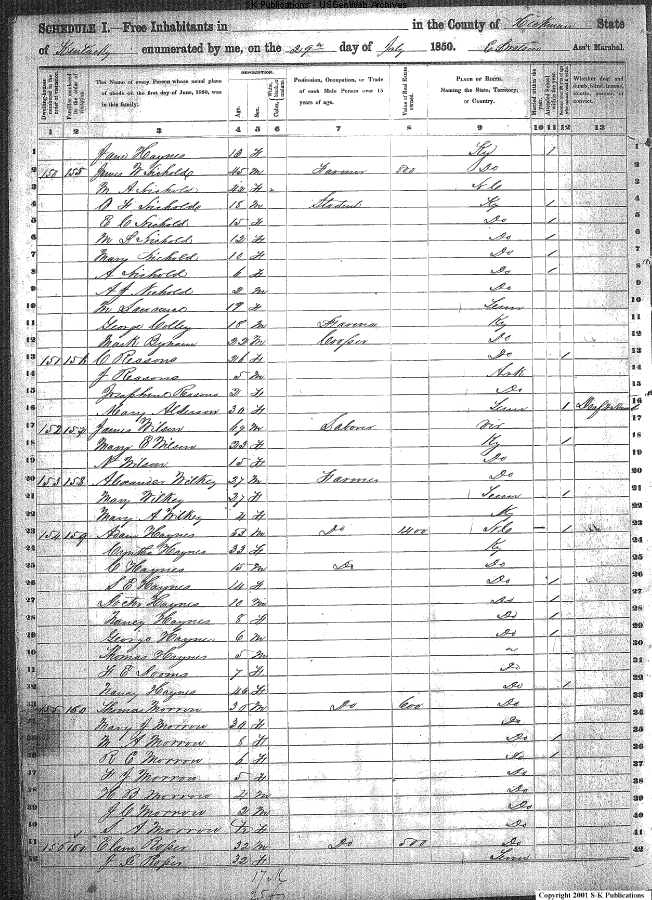 S-K Publications - USGenWeb Archives
SCHEDULE I.—Free Inhabitants in in the County of Hickman State
of Kentucky enumerated by me, on the 29th day of July 1850. Ass't Marshal.
Dwelling-houses numbered in the order of visitation.
Families numbered in the order of visitation.
The Name of every Person whose usual place of abode on the first day of June, 1850, was in this family.
DESCRIPTION.
Age.
Sex.
White, black, or mulatto.
Color,
Profession, Occupation, or Trade of each Male Person over 15 years of age.
Value of Real Estate owned.
PLACE OF BIRTH. Naming the State, Territory, or Country.
Married within the year.
Attended School within the year.
Whether deaf and dumb, blind, insane, idiotic, pauper, or convict.
1 2 3 4 5 6 7 8 9 10 11 12 13
1 Jane Haynes 12 F Ky 1 1
2 150 155 James W Nichold 45 M Farmer 800 Do 2
3 M A Nichold 42 F N C 3
4 Nichold 18 M Student Ky 1 4
5 E C Nichold 15 F Do 1 5
6 M S Nichold 12 F Do 1 6
7 Mary Nichold 10 F Do 1 7
8 A Nichold 6 F Do 1 8
9 A J Nichold 2 M Do 9
10 M 19 F Tenn 10
11 George Colley 18 M Farmer Ky 11
12 Mark 22 M Cooper Do 12
13 151 156 C Reasons 26 F Do 1 13
14 J Reasons 5 M Ark 14
15 Josephine Reasons 2 F Do 15
16 Mary Alderson 30 F Tenn 1 16
17 152 157 James Wilson 69 M Laborer Vir 17
18 Mary E Wilson 23 F Ky 1 18
19 N Wilson 15 F Do 19
20 153 158 Alexander Wilkey 27 M Farmer Do 20
21 Mary Wilkey 27 F Tenn 1 21
22 Mary A Wilkey 4 F Ky 22
23 154 159 Adam Haynes 53 M Do 1400 N C 1 23
24 Cyntha Haynes 33 F Ky 24
25 C Haynes 15 M Do Do 25
26 S E Haynes 14 F Do 1 26
27 Doctor Haynes 10 M Do 1 27
28 Nancy Haynes 8 F Do 1 28
29 George Haynes 6 M Do 1 29
30 Thomas Haynes 5 M 30
31 7 F Do 31
32 Nancy Haynes 46 F Do 1 32
33 155 160 Thomas Morrow 30 M Do 600 Do 33
34 Mary J Morrow 30 F Do 34
35 M A Morrow 8 F Do 1 35
36 R C Morrow 6 F Do 1 36
37 F J Morrow 5 F Do 37
38 H B Morrow 4 M Do 38
39 J C Morrow 2 M Do 39
40 S A Morrow F Do 40
41 156 161 Elam Roper 32 M Do 500 Do 41
42 Roper 32 F Tenn 42
17 M
25 F
Copyright 2001 S-K Publications